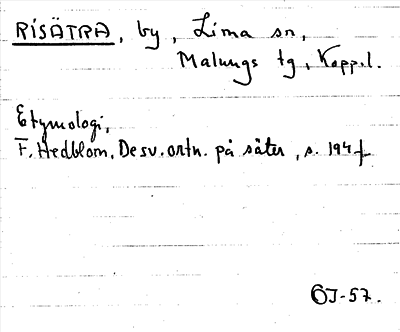 RISÄTRA, by, Lima sn,
Malungs tg, Kopp.l.
Etymologi,
F. Hedblom, De sv. ortn. på säter, s. 194 f.
ÖJ-57.